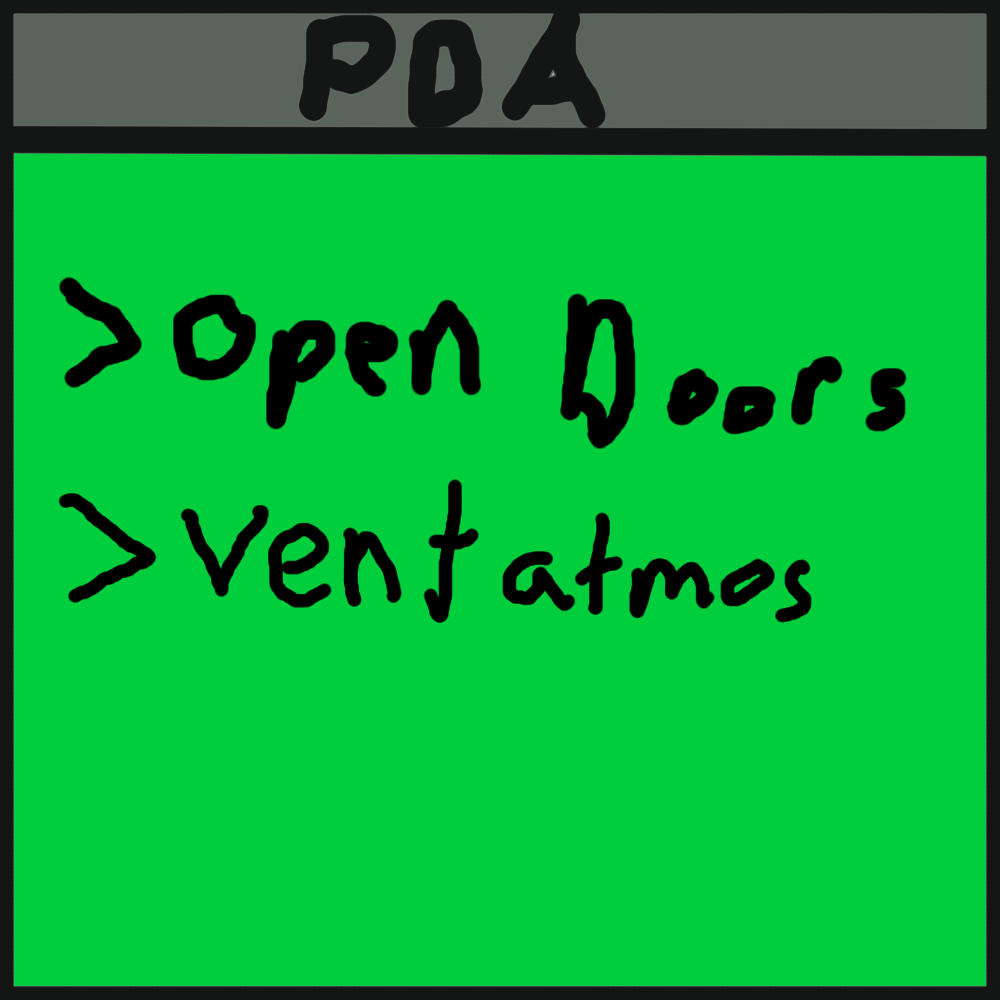 PDA
>Open Doors
>Vent atmos